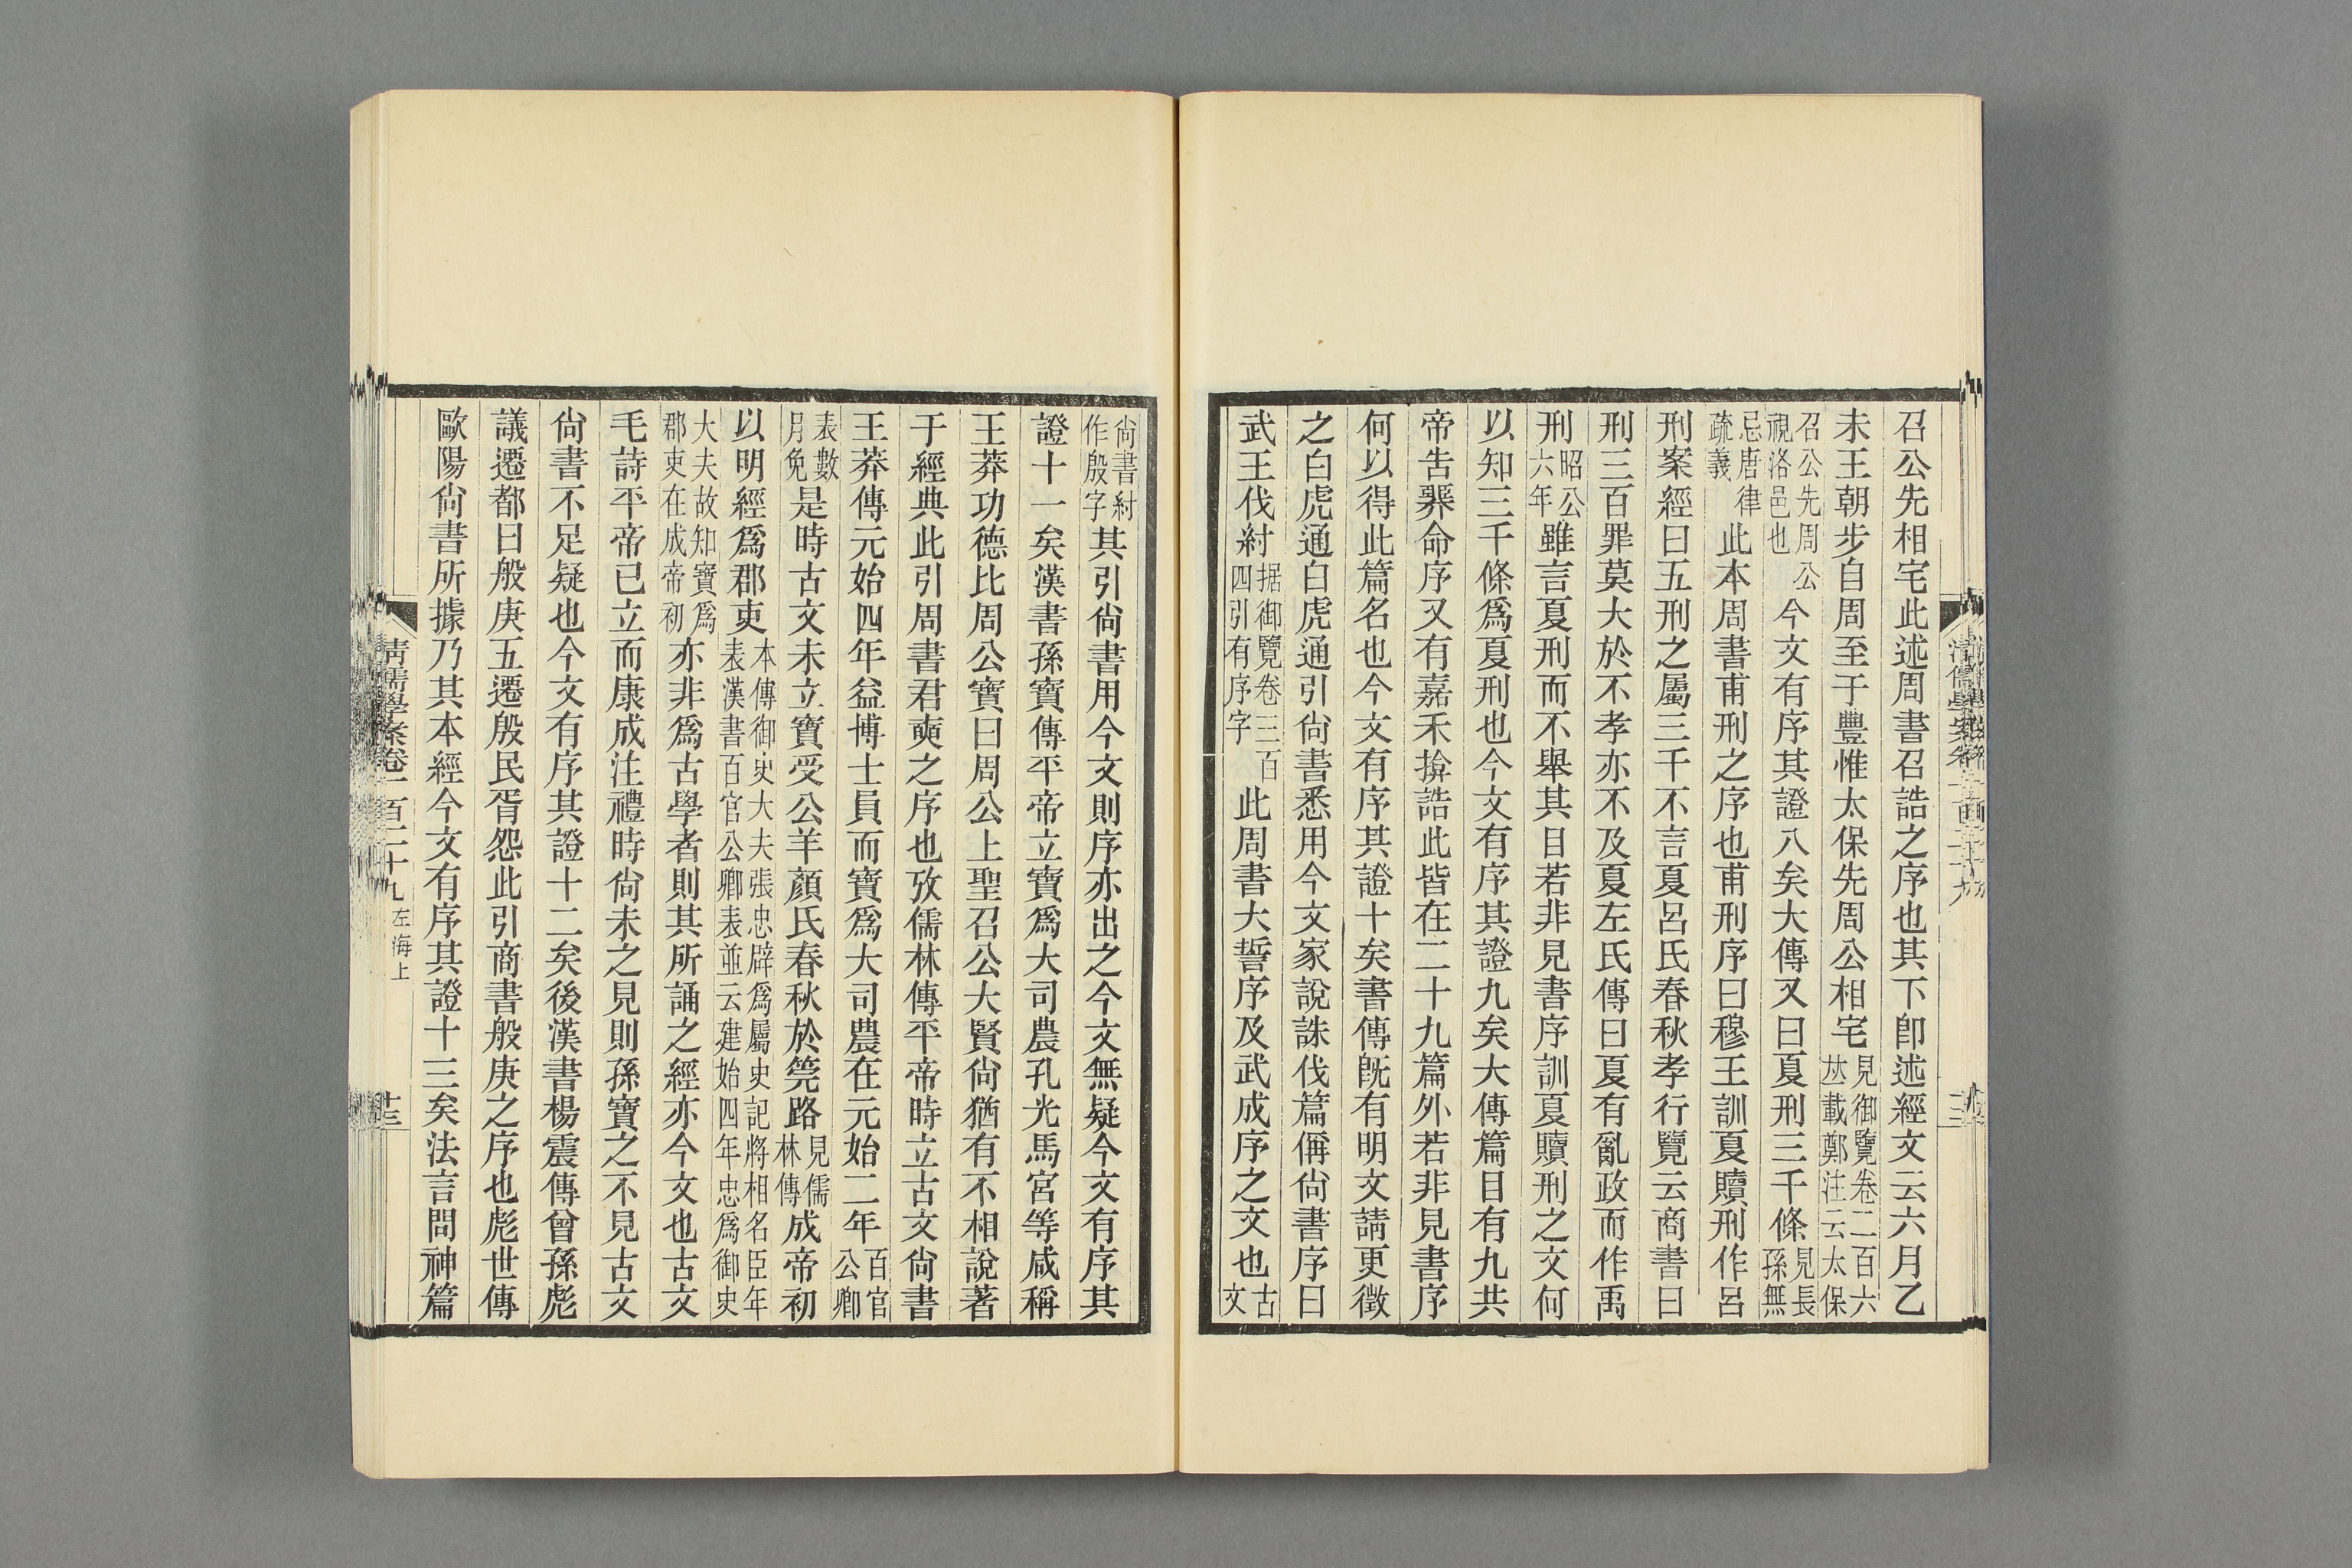 召公先相宅此述周書召誥之序也其下卽述經文云六月乙
未王朝步自周至于豐惟太保先周公相宅見御覽卷二百六𠀤載鄭注云太保
召公先周公視洛邑也今文有序其證八矣大傳又曰夏刑三千條見長孫無
忌唐律疏義此本周書甫刑之序也甫刑序曰穆王訓夏贖刑作呂
刑案經曰五刑之屬三千不言夏呂氏春秋孝行覽云商書曰
刑三百罪莫大於不孝亦不及夏左氏傳曰夏有亂政而作禹
刑昭公六年雖言夏刑而不舉其目若非見書序訓夏贖刑之文何
以知三千條爲夏刑也今文有序其證九矣大傳篇目有九共
帝告臩命序又有嘉禾揜誥此皆在二十九篇外若非見書序
何以得此篇名也今文有序其證十矣書傳旣有明文請更徵
之白虎通白虎通引尙書悉用今文家說誅伐篇偁尙書序曰
武王伐紂据御覽卷三百四引有序字此周書大誓序及武成序之文也古文
尙書紂作殷字其引尙書用今文則序亦出之今文無疑今文有序其
證十一矣漢書孫寶傳平帝立寶爲大司農孔光馬宮等咸稱
王莽功德比周公寶曰周公上聖召公大賢尙猶有不相說著
于經典此引周書君奭之序也攷儒林傳平帝時立古文尙書
王莽傳元始四年益博士員而寶爲大司農在元始二年百官公卿
表數月免是時古文未立寶受公羊顏氏春秋於筦路見儒林傳成帝初
以明經爲郡吏本傳御史大夫張忠辟爲屬史記將相名臣年表漢書百官公卿表並云建始四年忠爲御史
大夫故知寶爲郡吏在成帝初亦非爲古學者則其所誦之經亦今文也古文
毛詩平帝已立而康成注禮時尙未之見則孫寶之不見古文
尙書不足疑也今文有序其證十二矣後漢書楊震傳曾孫彪
議遷都曰般庚五遷殷民胥怨此引商書般庚之序也彪世傳
歐陽尙書所據乃其本經今文有序其證十三矣法言問神篇
清儒學案卷一百二十九 左海上
十三